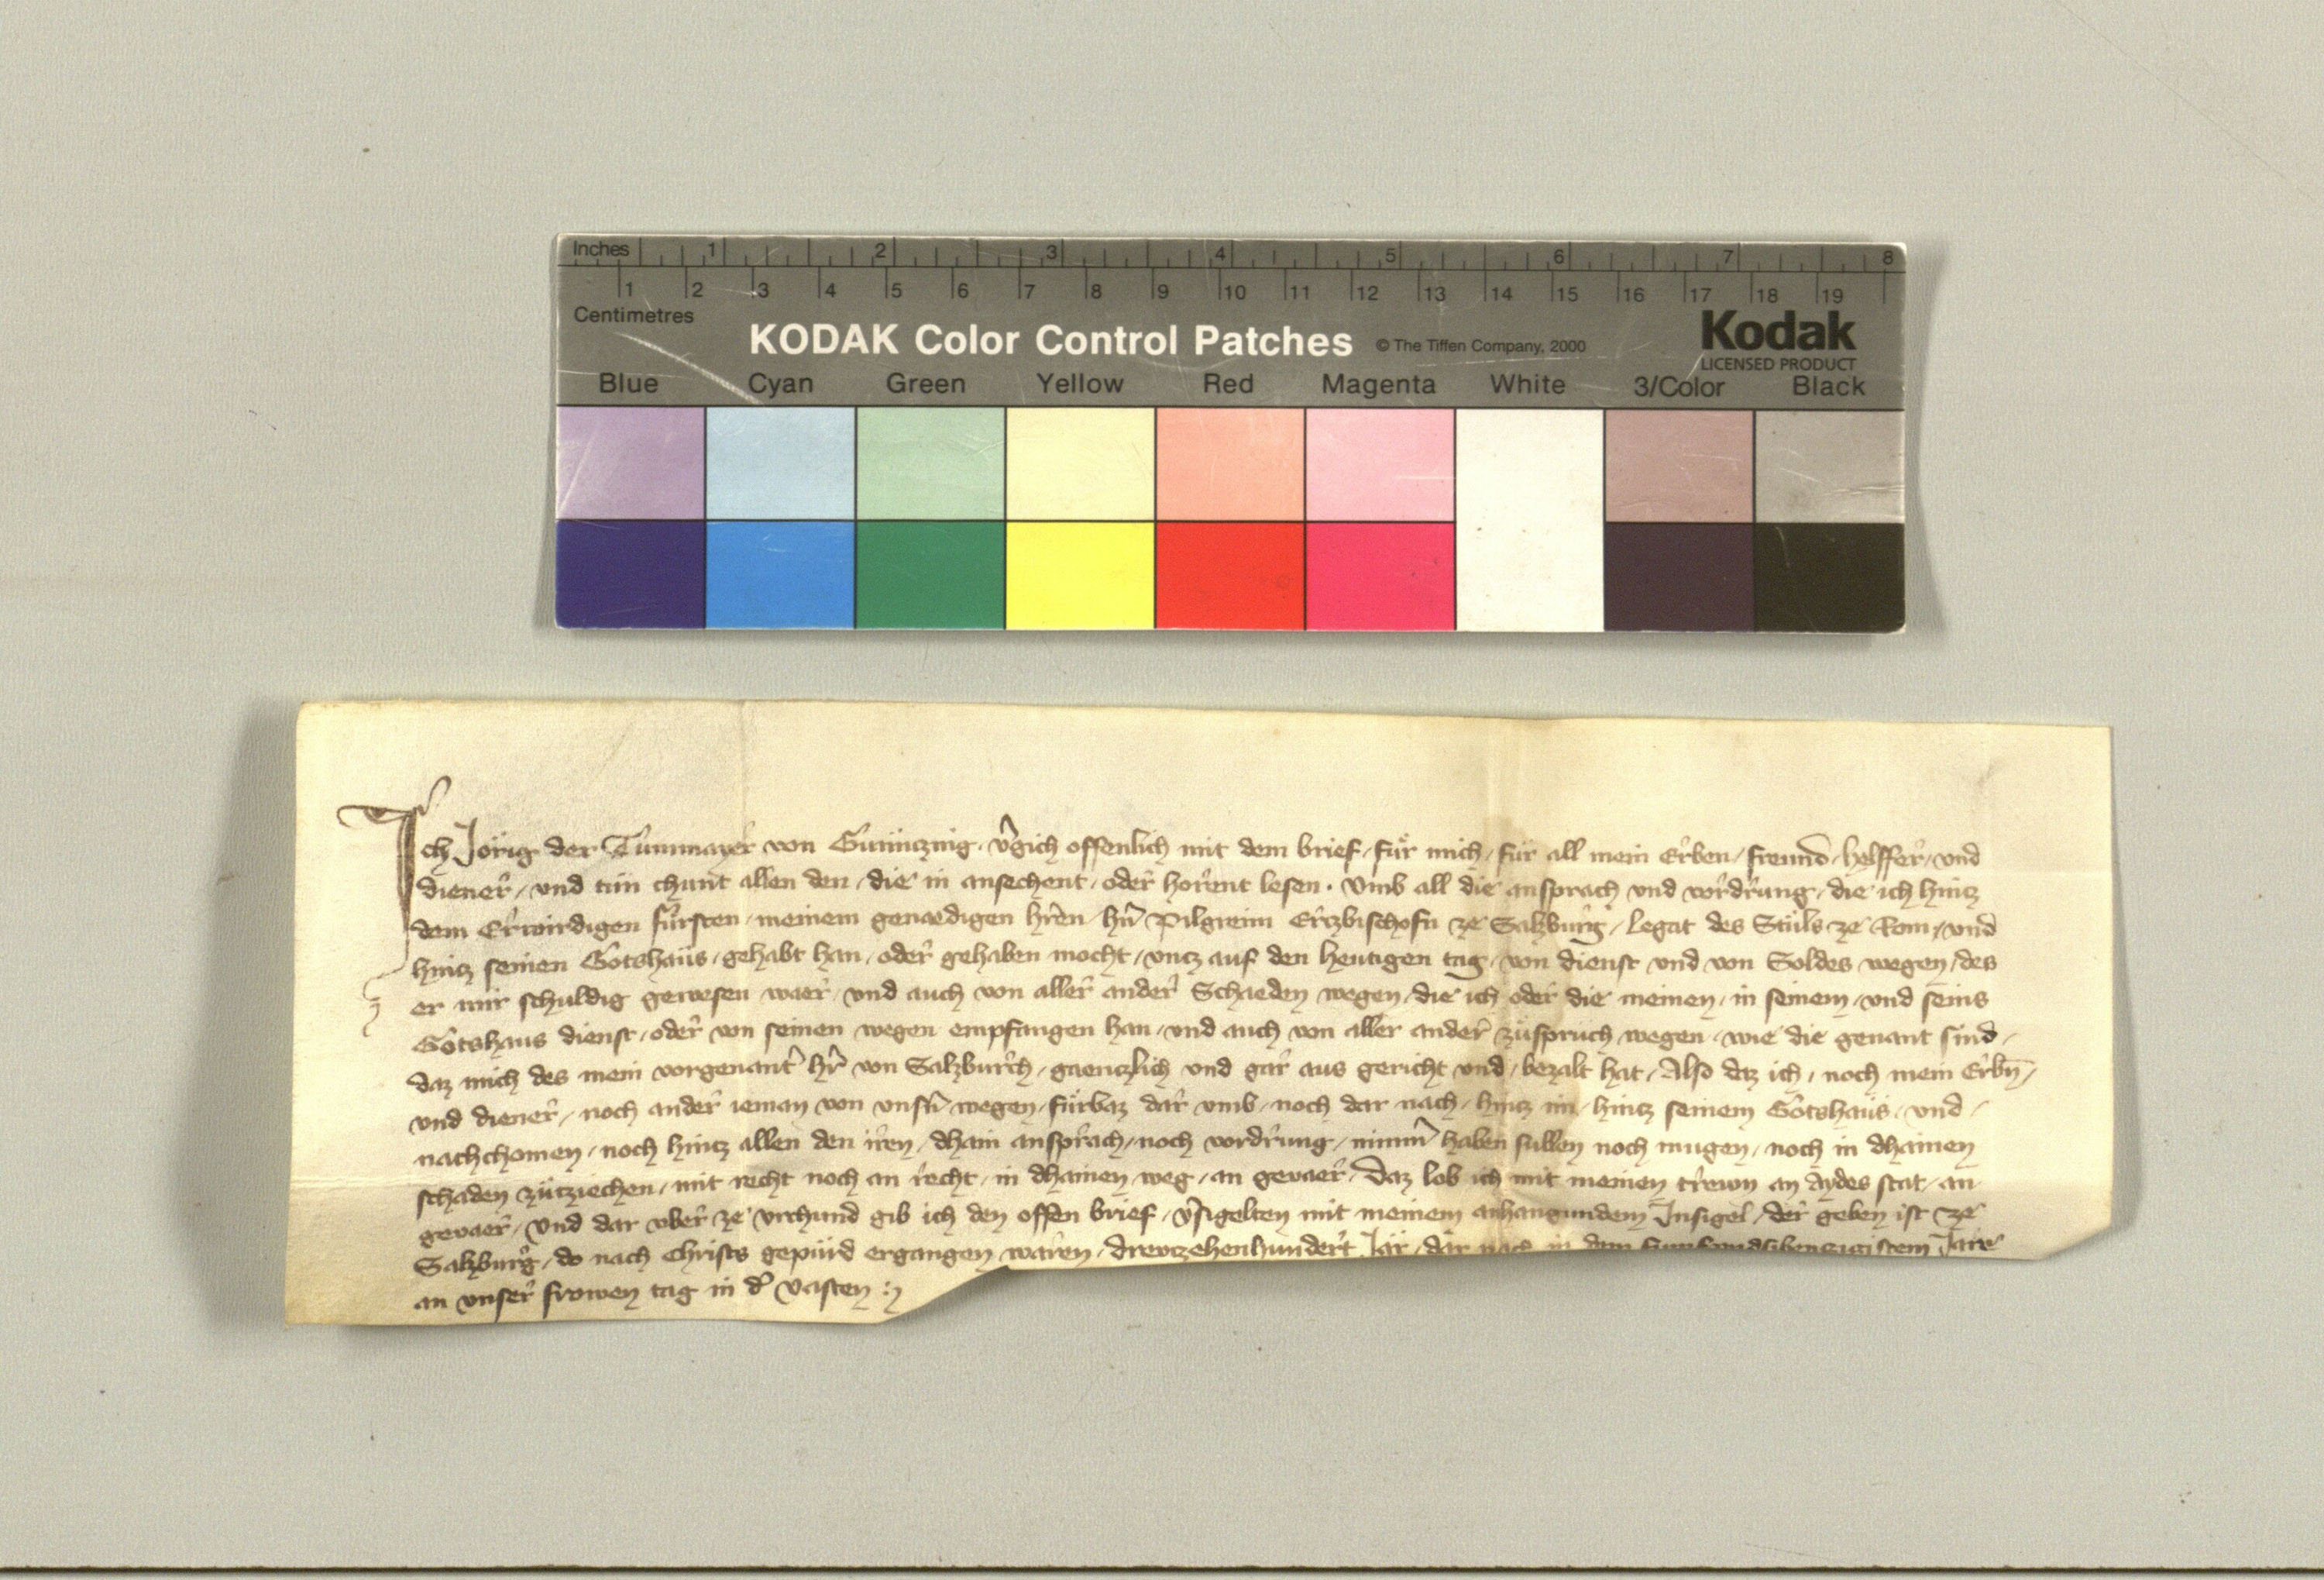 Inches 1 2 3 4 5 6 7 8
1 2 3 4 5 6 7 8 9 10 11 12 13 14 15 16 17 18 19
Centimetres
KODAK Color Control Patches © The Tiffen Company, 2000 Kodak
LICENSED PRODUCT
Blue Cyan Green Yellow Red Magenta White 3/Color Black
Ich Jörig der von v̂gich offenlich mit dem brief, für mich, für all mein Erben, freund, helffer, und
diener, und tün chunt allen den, die in ansechent, oder horent lesen. Umb all die ansprach und vordrung, die ich hincz
dem Erwirdigen fürsten, meinem genaedigen hren, hn̂ Pilgreim Erczbischofn ze Salzburg, legat des Stüls ze Rom, und
hincz seinen Gotshaüs, gehabt han, oder gehaben mocht, uncz auf den heutigen tag, von dienst und von Soldes wegen, des
er mir schuldig gewesen waer, und auch von aller ander Schaeden wegen, die ich oder die meinen, in seinem, und seins
Gotshaus dienst, oder von seinen wegen empfangen han, und auch von aller ander züspruch wegen, wie die genant sind,
daz mich des mein vorgenant̂ hr̂ von Salzburch, gaenczlich und gar aus gericht und, bezalt hat, Also daz ich, noch mein Erbn̄,
und diener, noch ander ieman von unsn̂ wegen, fürbaz dar umb, noch dar nach, hincz im, hincz seinem Gotshaüs, und,
nachchomen, noch hincz allen den iren, dhain ansprach, noch vordrung, nimm̂ haben sullen noch mugen, noch in dhainen
schaden züziechen, mit recht noch an recht, in dhainen weg, an gevaer, Daz lob ich mit meinen trewn an Aydes stat, an
gevaer, Und dar uber ze urchund gib ich den offen brief, v̂sigelten mit meinem anhangundem Insigel, der geben ist ze
Salzburg, do nach Christs gepürd ergangen waren, drewczehenhundert Jar, dar nach in dem Jare
an unser frowen tag in d̂ vasten